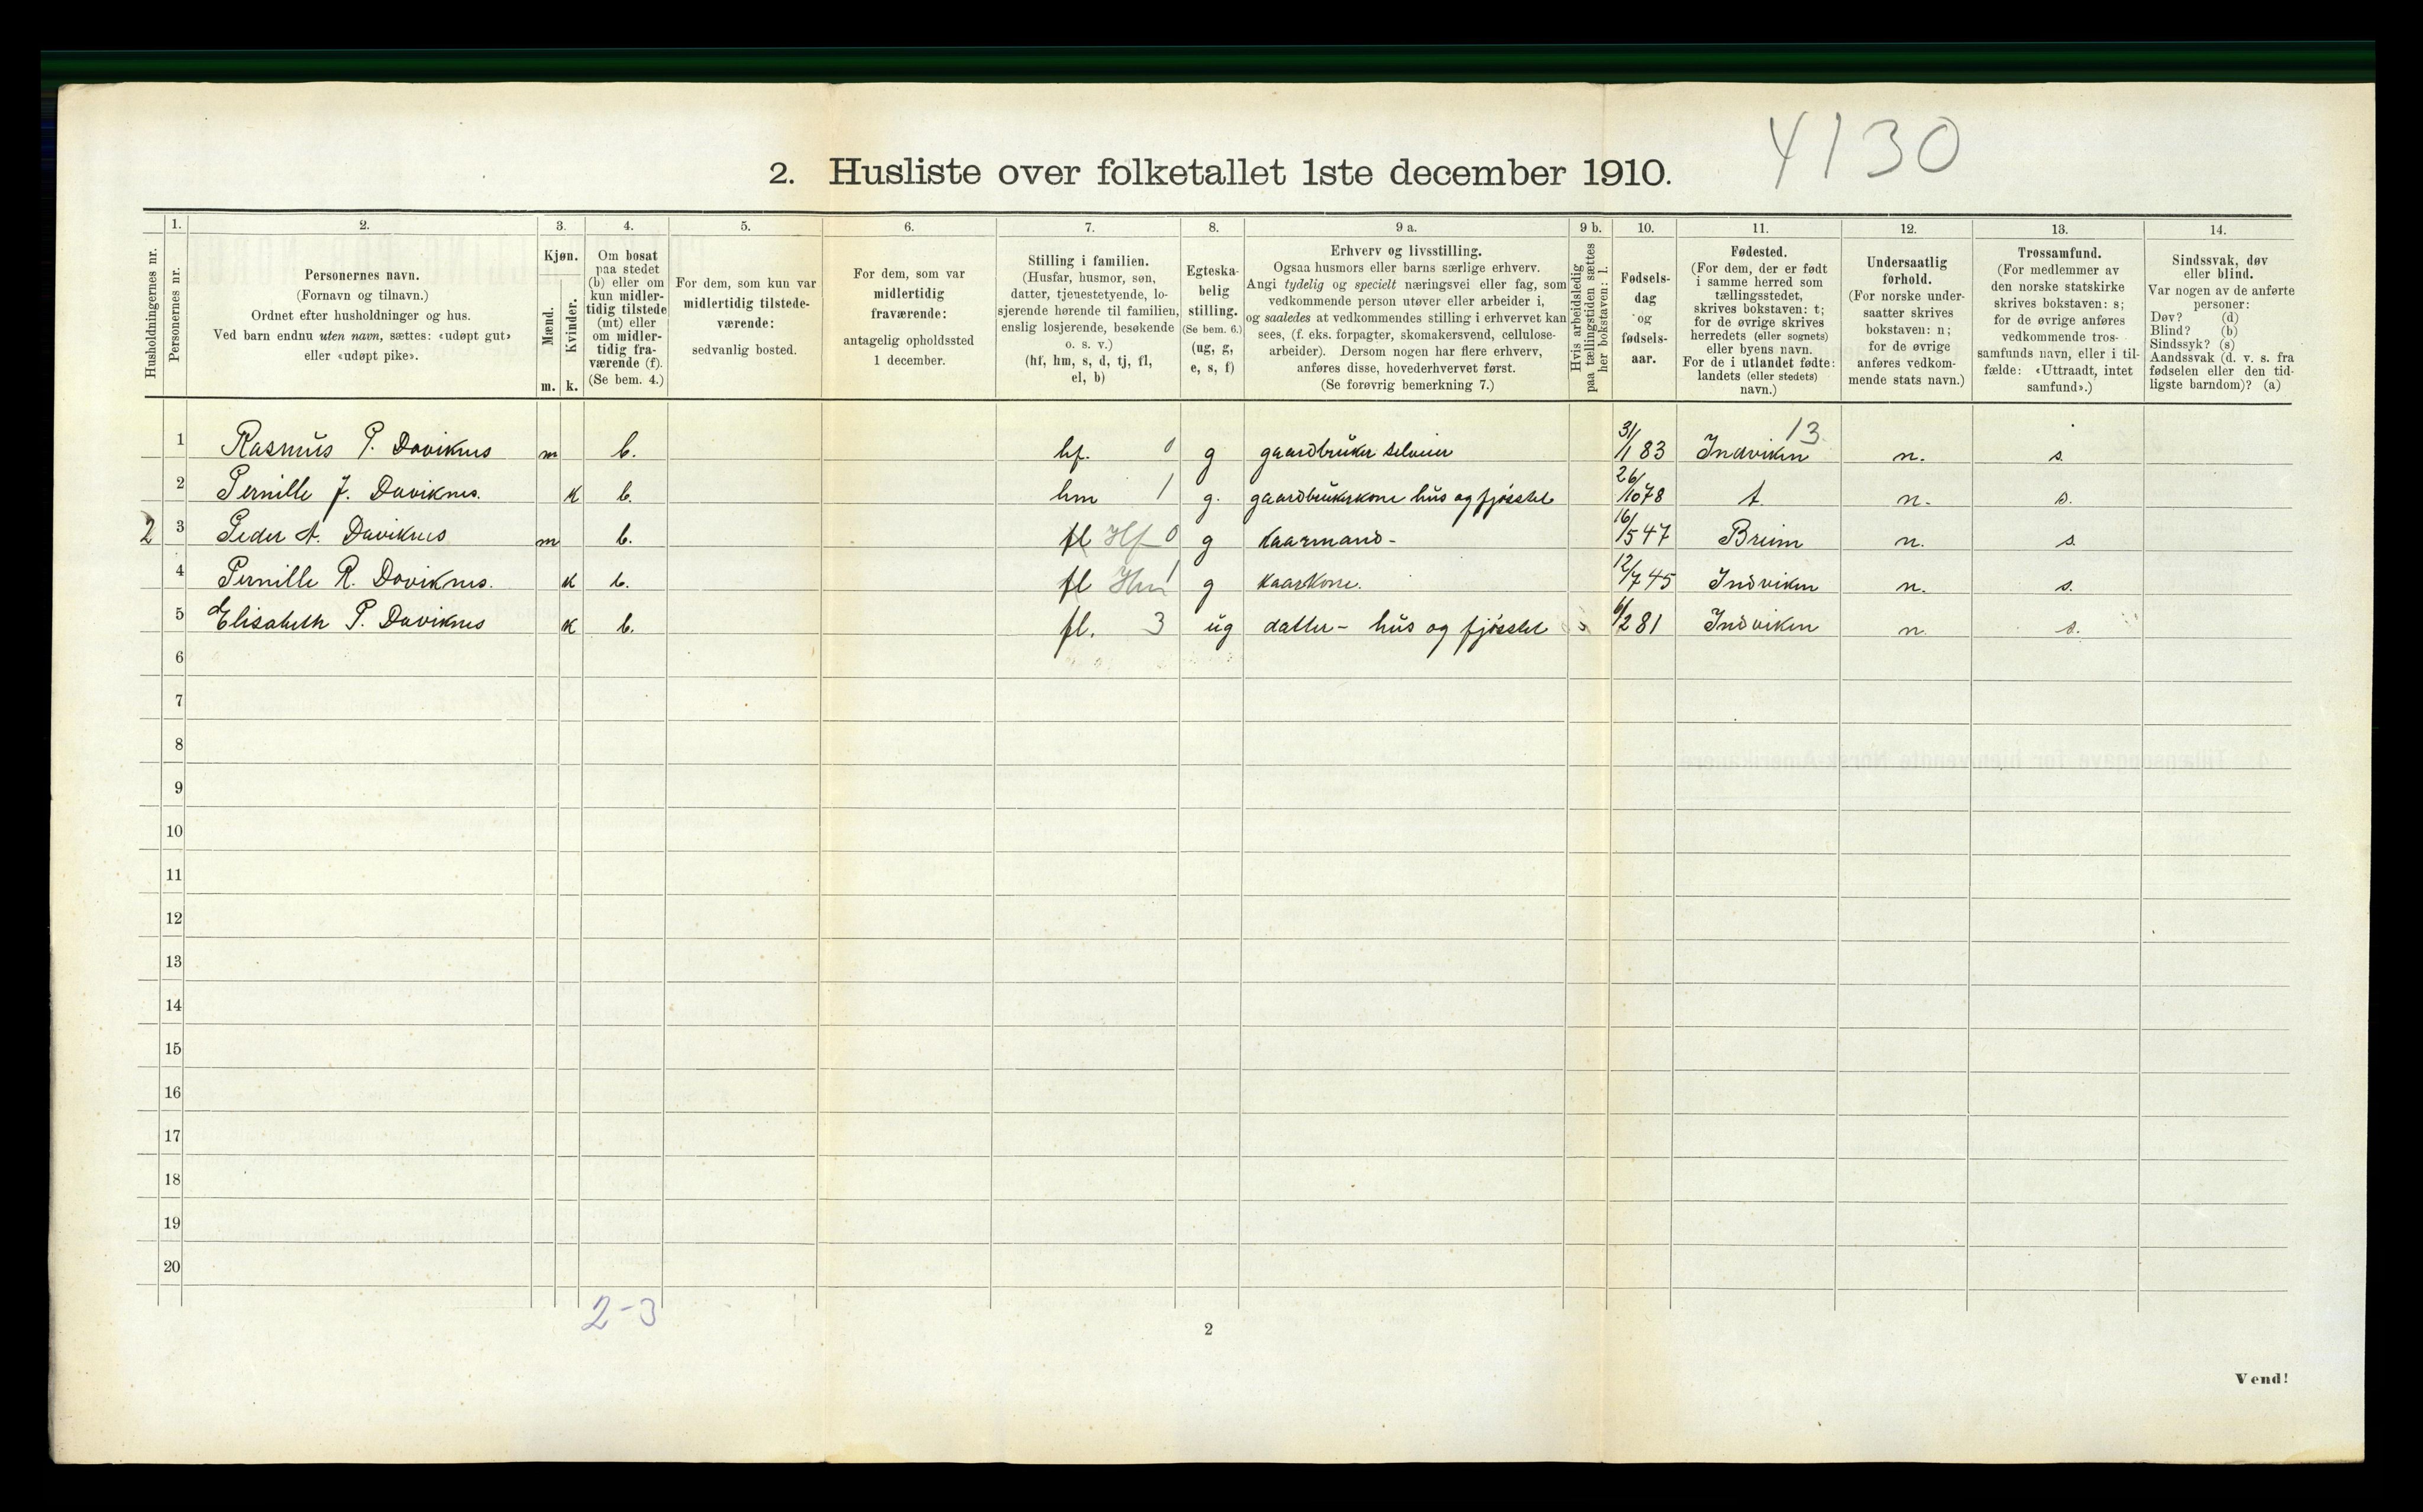 4130
2. Husliste over folketallet 1ste december 1910.
Husholdningernes nr.
1.
Personernes nr.
2.
Personernes navn.
(Fornavn og tilnavn.)
Ordnet efter husholdninger og hus.
Ved barn endnu uten navn, sættes: «udøpt gut»
eller «udøpt pike».
3.
Kjøn.
Mænd.
Kvinder.
m. k.
4.
Om bosat
paa stedet
(b) eller om
kun midler-
tidig tilstede
(mt) eller
om midler-
tidig fra-
værende (f).
(Se bem. 4.)
5.
For dem, som kun var
midlertidig tilstede-
værende:
sedvanlig bosted.
6.
For dem, som var
midlertidig
fraværende:
antagelig opholdssted
1 december.
7.
Stilling i familien.
(Husfar, husmor, søn,
datter, tjenestetyende, lo-
sjerende hørende til familien,
enslig losjerende, besøkende
o. s. v.)
(hf, hm, s, d, tj, fl,
el, b)
8.
Egteska-
belig
stilling.
(Se bem. 6.)
(ug, g,
e, s, f)
9 a.
Erhverv og livsstilling.
Ogsaa husmors eller barns særlige erhverv.
Angi tydelig og specielt næringsvei eller fag, som
vedkommende person utøver eller arbeider i,
og saaledes at vedkommendes stilling i erhvervet kan
sees, (f. eks. forpagter, skomakersvend, cellulose-
arbeider). Dersom nogen har flere erhverv,
anføres disse, hovederhvervet først.
(Se forøvrig bemerkning 7.)
9 b.
Hvis arbeidsledig
paa tællingstiden sættes
her bokstaven: l.
10.
Fødsels-
dag
og
fødsels-
aar.
11.
Fødested.
(For dem, der er født
i samme herred som
tællingsstedet,
skrives bokstaven: t;
for de øvrige skrives
herredets (eller sognets)
eller byens navn.
For de i utlandet fødte:
landets (eller stedets)
navn.)
12.
Undersaatlig
forhold.
(For norske under-
saatter skrives
bokstaven: n;
for de øvrige
anføres vedkom-
mende stats navn.)
13.
Trossamfund.
(For medlemmer av
den norske statskirke
skrives bokstaven: s;
for de øvrige anføres
vedkommende tros-
samfunds navn, eller i til-
fælde: «Uttraadt, intet
samfund».)
14.
Sindssvak, døv
eller blind.
Var nogen av de anførte
personer:
Døv? (d)
Blind? (b)
Sindssyk? (s)
Aandssvak (d. v. s. fra
fødselen eller den tid-
ligste barndom)? (a)
1 Rasmus P. Daviknes m b. hf. 0 g gaardbruker selveier 31/1 83 Indviken 13 n. s.
2 Pernille J. Daviknes. k b. hm 1 g. gaardbrukerkone hus og fjøsstel 26/10 78 t. n. s.
2 3 Peder A. Daviknes m b. fl Hf 0 g kaarmand- 16/5 47 Breim n. s.
4 Pernille R. Daviknes. k b. fl Hm 1 g kaarkone. 12/7 45 Indviken n. s.
5 Elisabeth P. Daviknes k b. fl. 3 ug datter - hus og fjøsstel 6/2 81 Indviken n. s.
6
7
8
9
10
11
12
13
14
15
16
17
18
19
20
2-3
2
Vend!